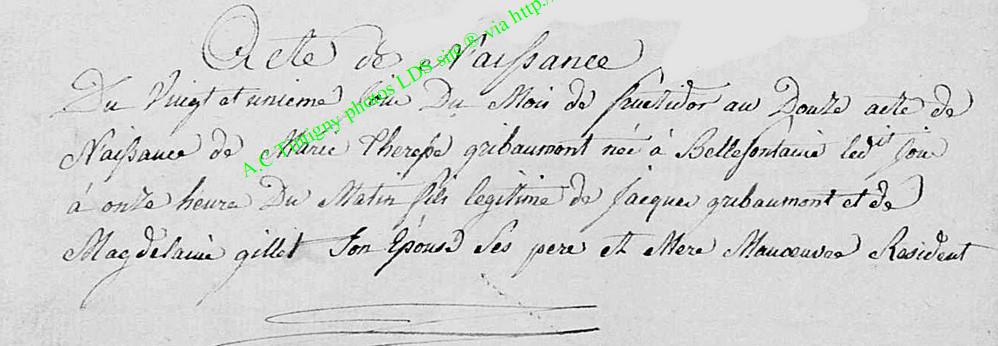 Acte de Naissance
Du Vingt et unieme jour Du Mois de fructidor an Douze acte de
Naissance de Marie Therese gribaumont née à Bellefontaine ledit jour
à onze heure Du Matin fils legitime de jacques gribaumont et de
Magdelaine gillet son Epouse ses pere et Mere Manoeuvre Resident
A.C Tintigny photos LDS site ® via http:/